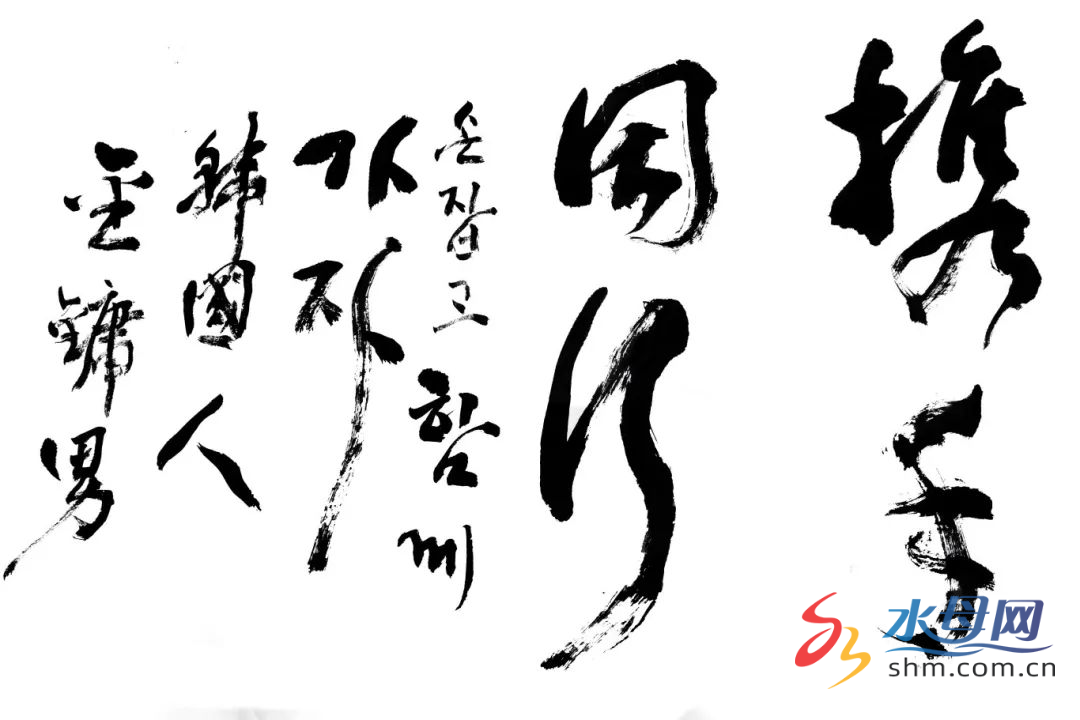 携手
同行
손잡고 함께
가자
韓國人
金鏞男
水母网
shm.com.cn